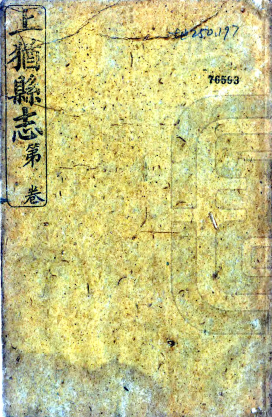 上猶縣志第 卷
250.197
76593